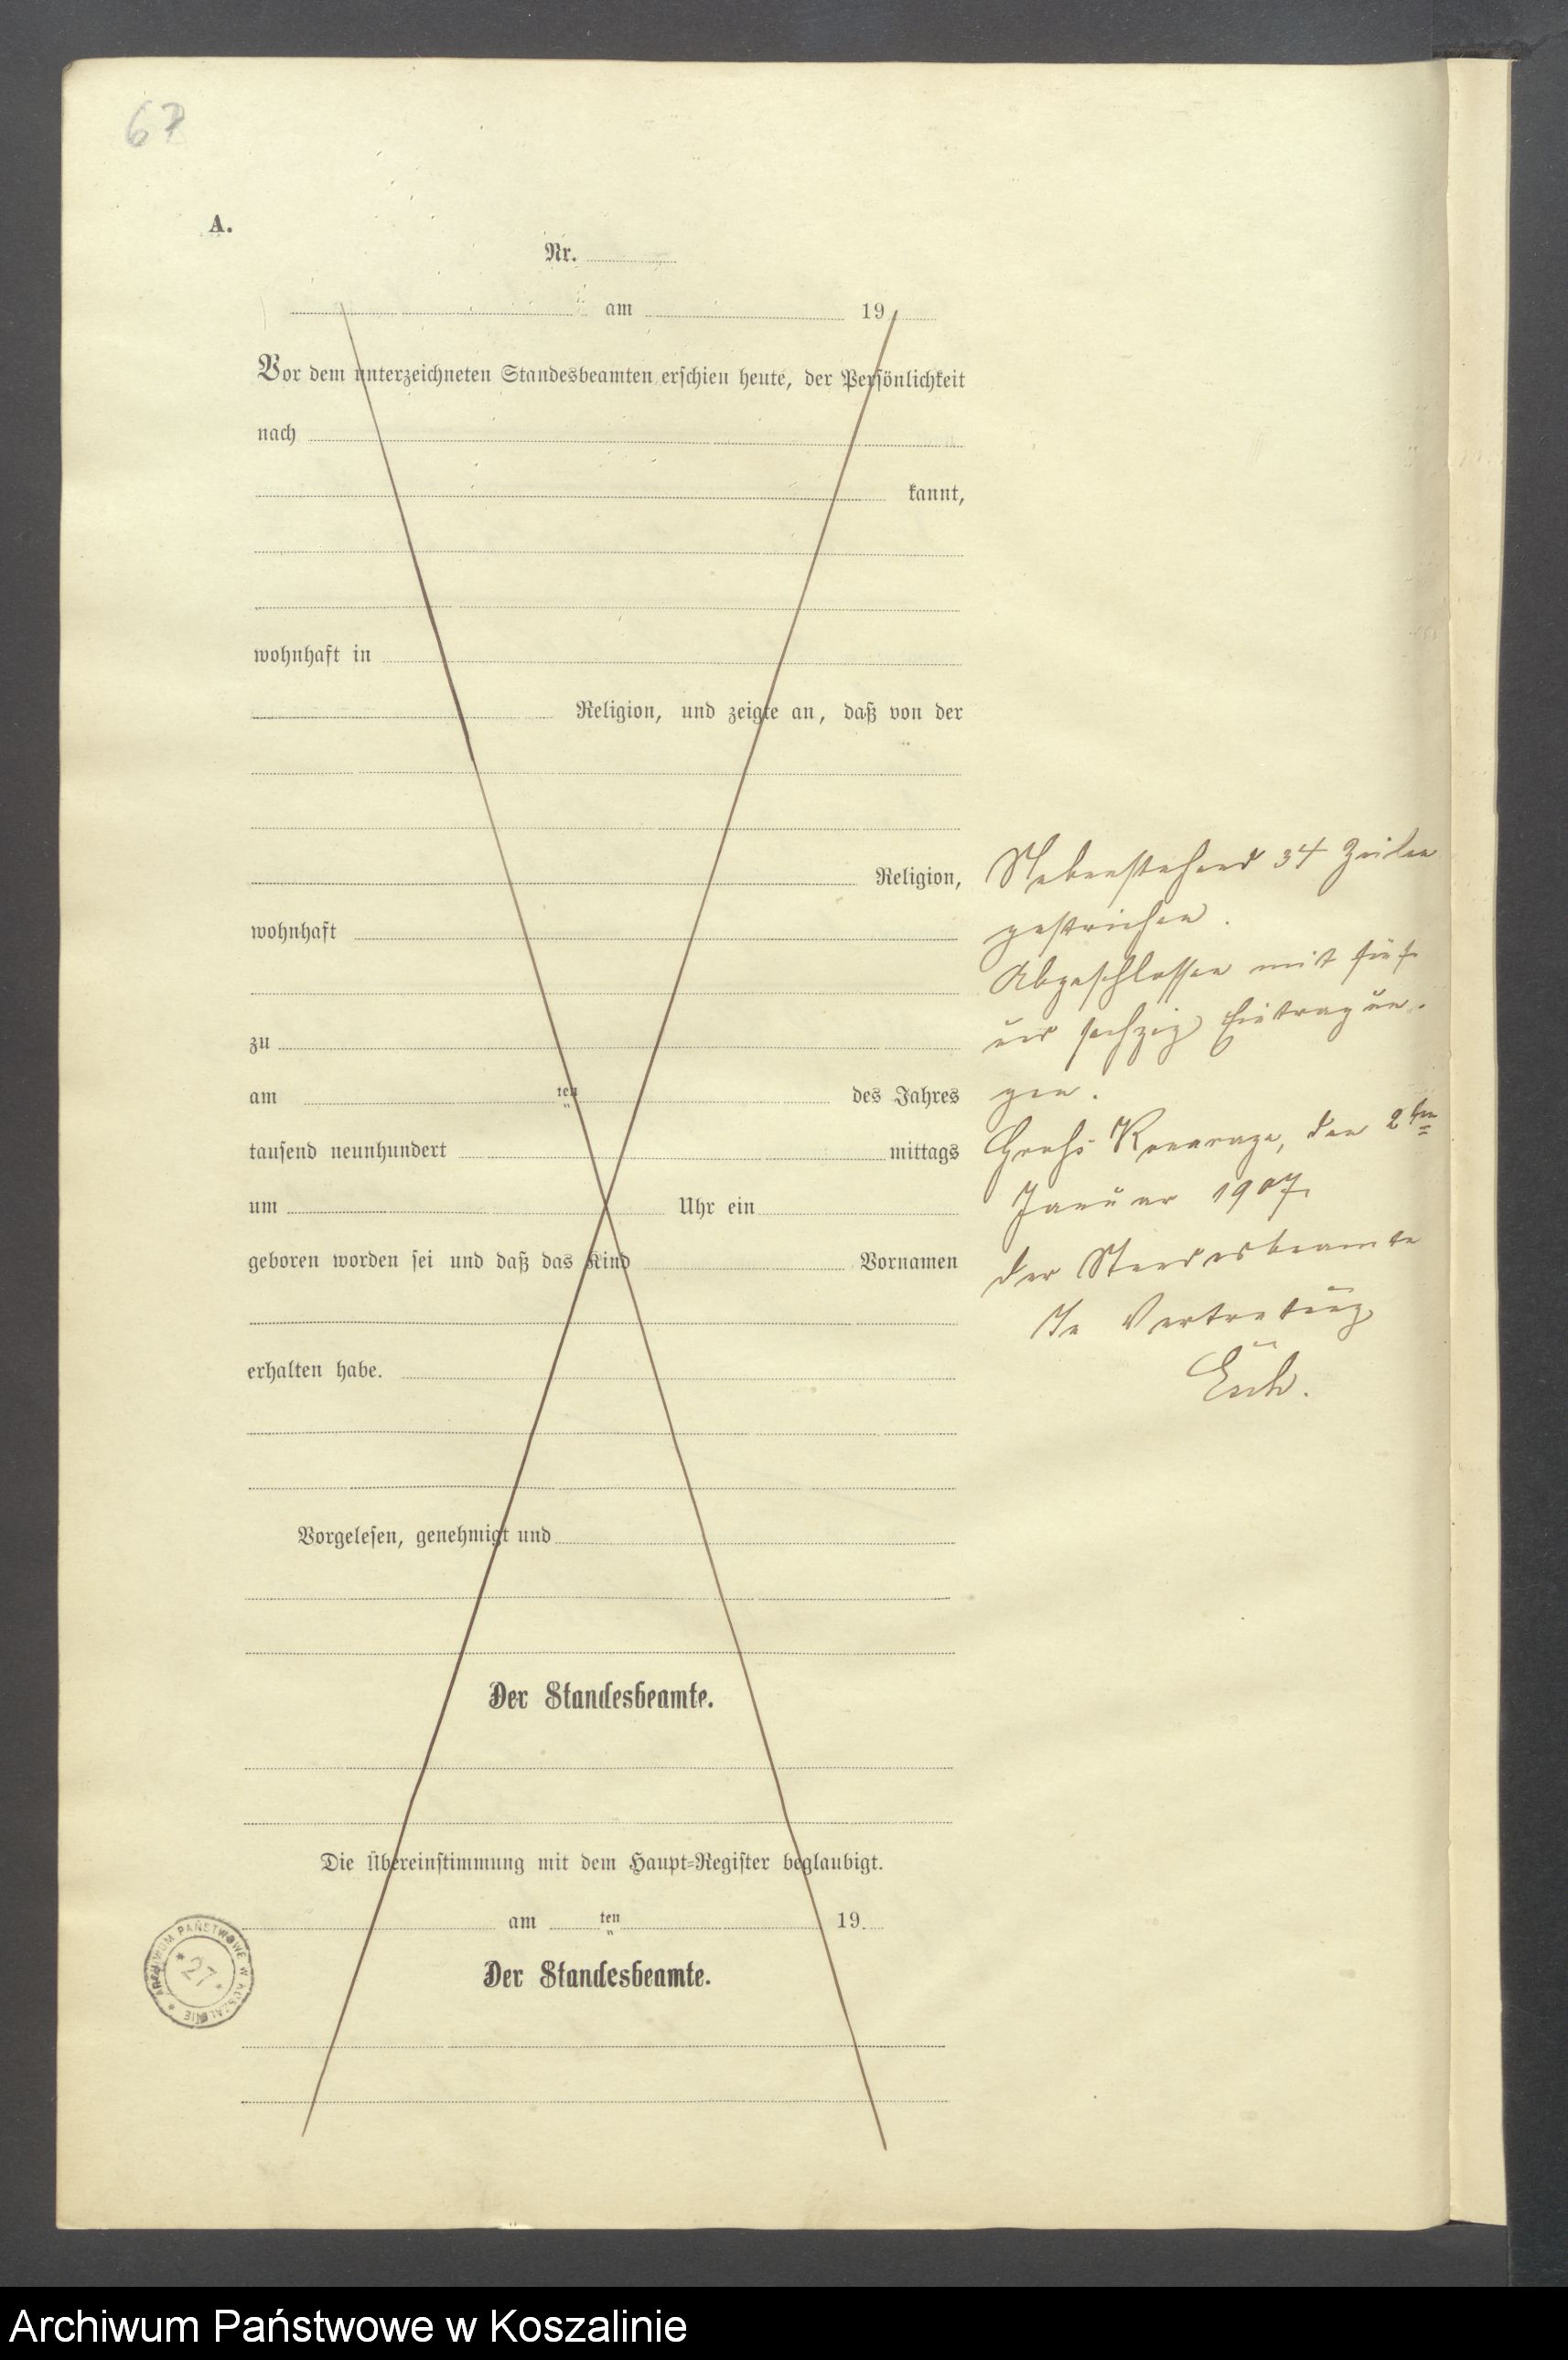 67
A.
Nr.
am 19
Vor dem unterzeichneten Standesbeamten erschien heute, der Persönlichkeit
nach
kannt,
wohnhaft in
Religion, und zeigte an, daß von der
Religion,
wohnhaft
zu
am ten des Jahres
tausend neunhundert mittags
um Uhr ein
geboren worden sei und daß das Kind Vornamen
erhalten habe.
Vorgelesen, genehmigt und
Der Standesbeamte.
Die Übereinstimmung mit dem Haupt-Register beglaubigt.
am ten 19
Der Standesbeamte.
Nebenstehend 34 Zeilen
gestrichen.
Abgeschlossen mit fünf
und sechzig Eintragun-
gen.
Groß den 2ten
Januar 1907.
Der Standesbeamte
In Vertretung
ARCHIWUM PAŃSTWOWE W KOSZALINIE
27
Archiwum Państwowe w Koszalinie